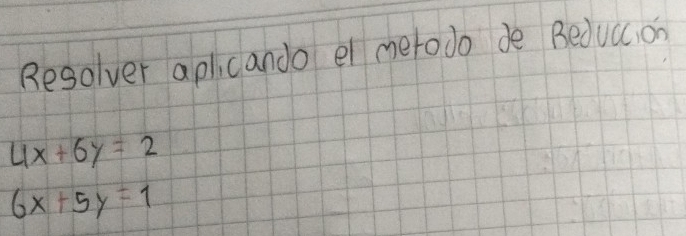 Resolver aplicando el metodo de Reducción
4x + 6y = 2
6x + 5y = 1